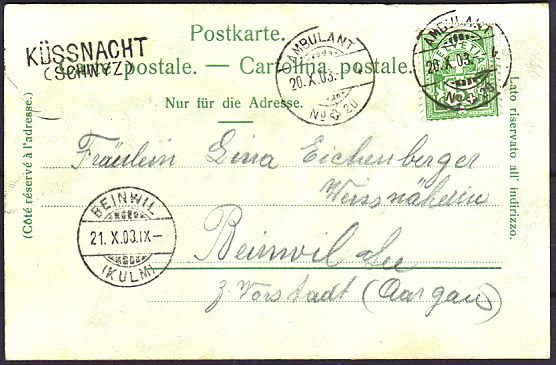 Postkarte.
KÜSSNACHT
(SCHWYZ)
Carte postale. — Cartolina postale.
Nur für die Adresse.
AMBULANT
20.X.03.
No 20
AMBULANT
20.X.03.
No 20
HELVETIA
(Côté réservé à l'adresse.)
Lato riservato all' indirizzo.
Fräulein Lina Eichenberger
Weissnäherin
BEINWIL
21.X.03.IX-
(KULM)
Beinwil See
z. Vorstadt (Aargau)